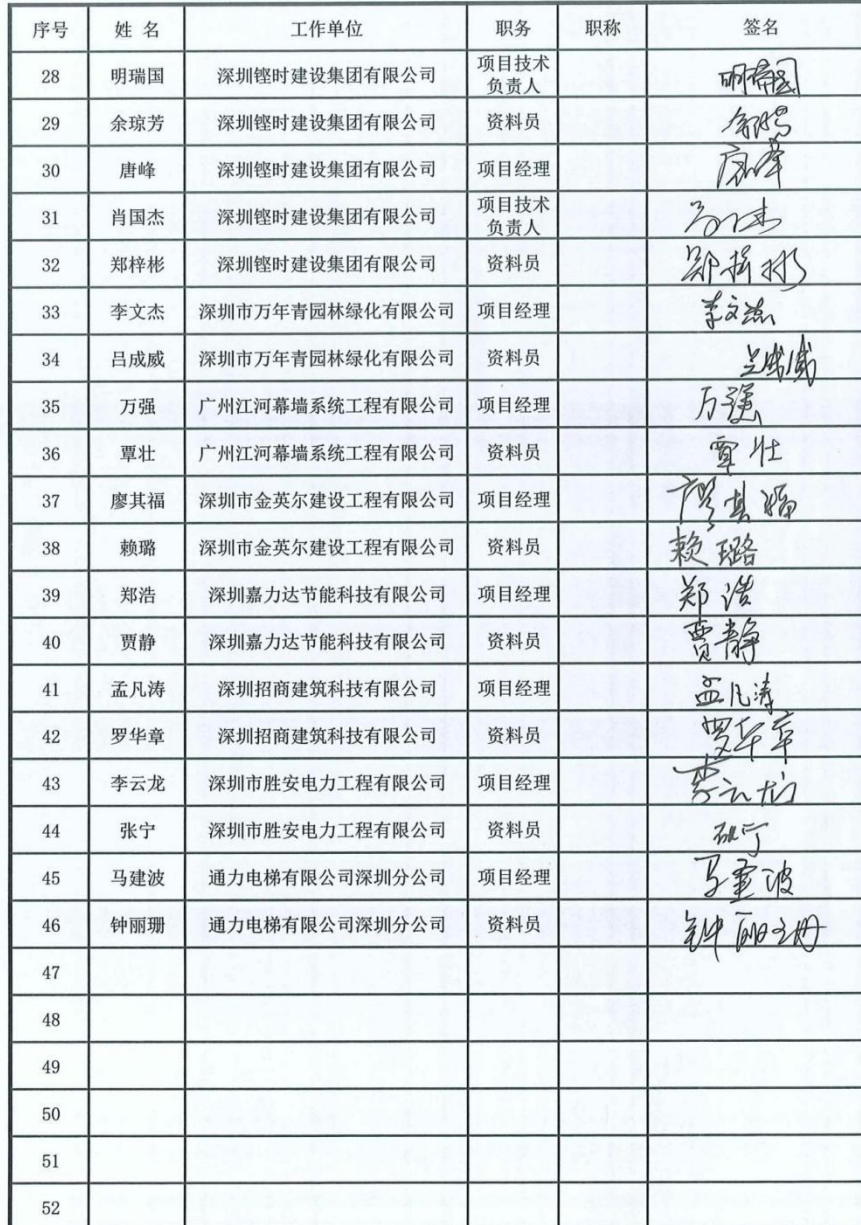 序号 姓 名 工作单位 职务 职称 签名
28 明瑞国 深圳铿时建设集团有限公司 项目技术负责人 明瑞国
29 余琼芳 深圳铿时建设集团有限公司 资料员
30 唐峰 深圳铿时建设集团有限公司 项目经理 唐峰
31 肖国杰 深圳铿时建设集团有限公司 项目技术负责人
32 郑梓彬 深圳铿时建设集团有限公司 资料员 郑梓彬
33 李文杰 深圳市万年青园林绿化有限公司 项目经理 李文杰
34 吕成威 深圳市万年青园林绿化有限公司 资料员 吕成威
35 万强 广州江河幕墙系统工程有限公司 项目经理 万强
36 覃壮 广州江河幕墙系统工程有限公司 资料员 覃壮
37 廖其福 深圳市金英尔建设工程有限公司 项目经理 廖其福
38 赖璐 深圳市金英尔建设工程有限公司 资料员 赖璐
39 郑浩 深圳嘉力达节能科技有限公司 项目经理 郑浩
40 贾静 深圳嘉力达节能科技有限公司 资料员 贾静
41 孟凡涛 深圳招商建筑科技有限公司 项目经理 孟凡涛
42 罗华章 深圳招商建筑科技有限公司 资料员 罗华章
43 李云龙 深圳市胜安电力工程有限公司 项目经理 李云龙
44 张宁 深圳市胜安电力工程有限公司 资料员 张宁
45 马建波 通力电梯有限公司深圳分公司 项目经理 马建波
46 钟丽珊 通力电梯有限公司深圳分公司 资料员 钟丽珊
47
48
49
50
51
52